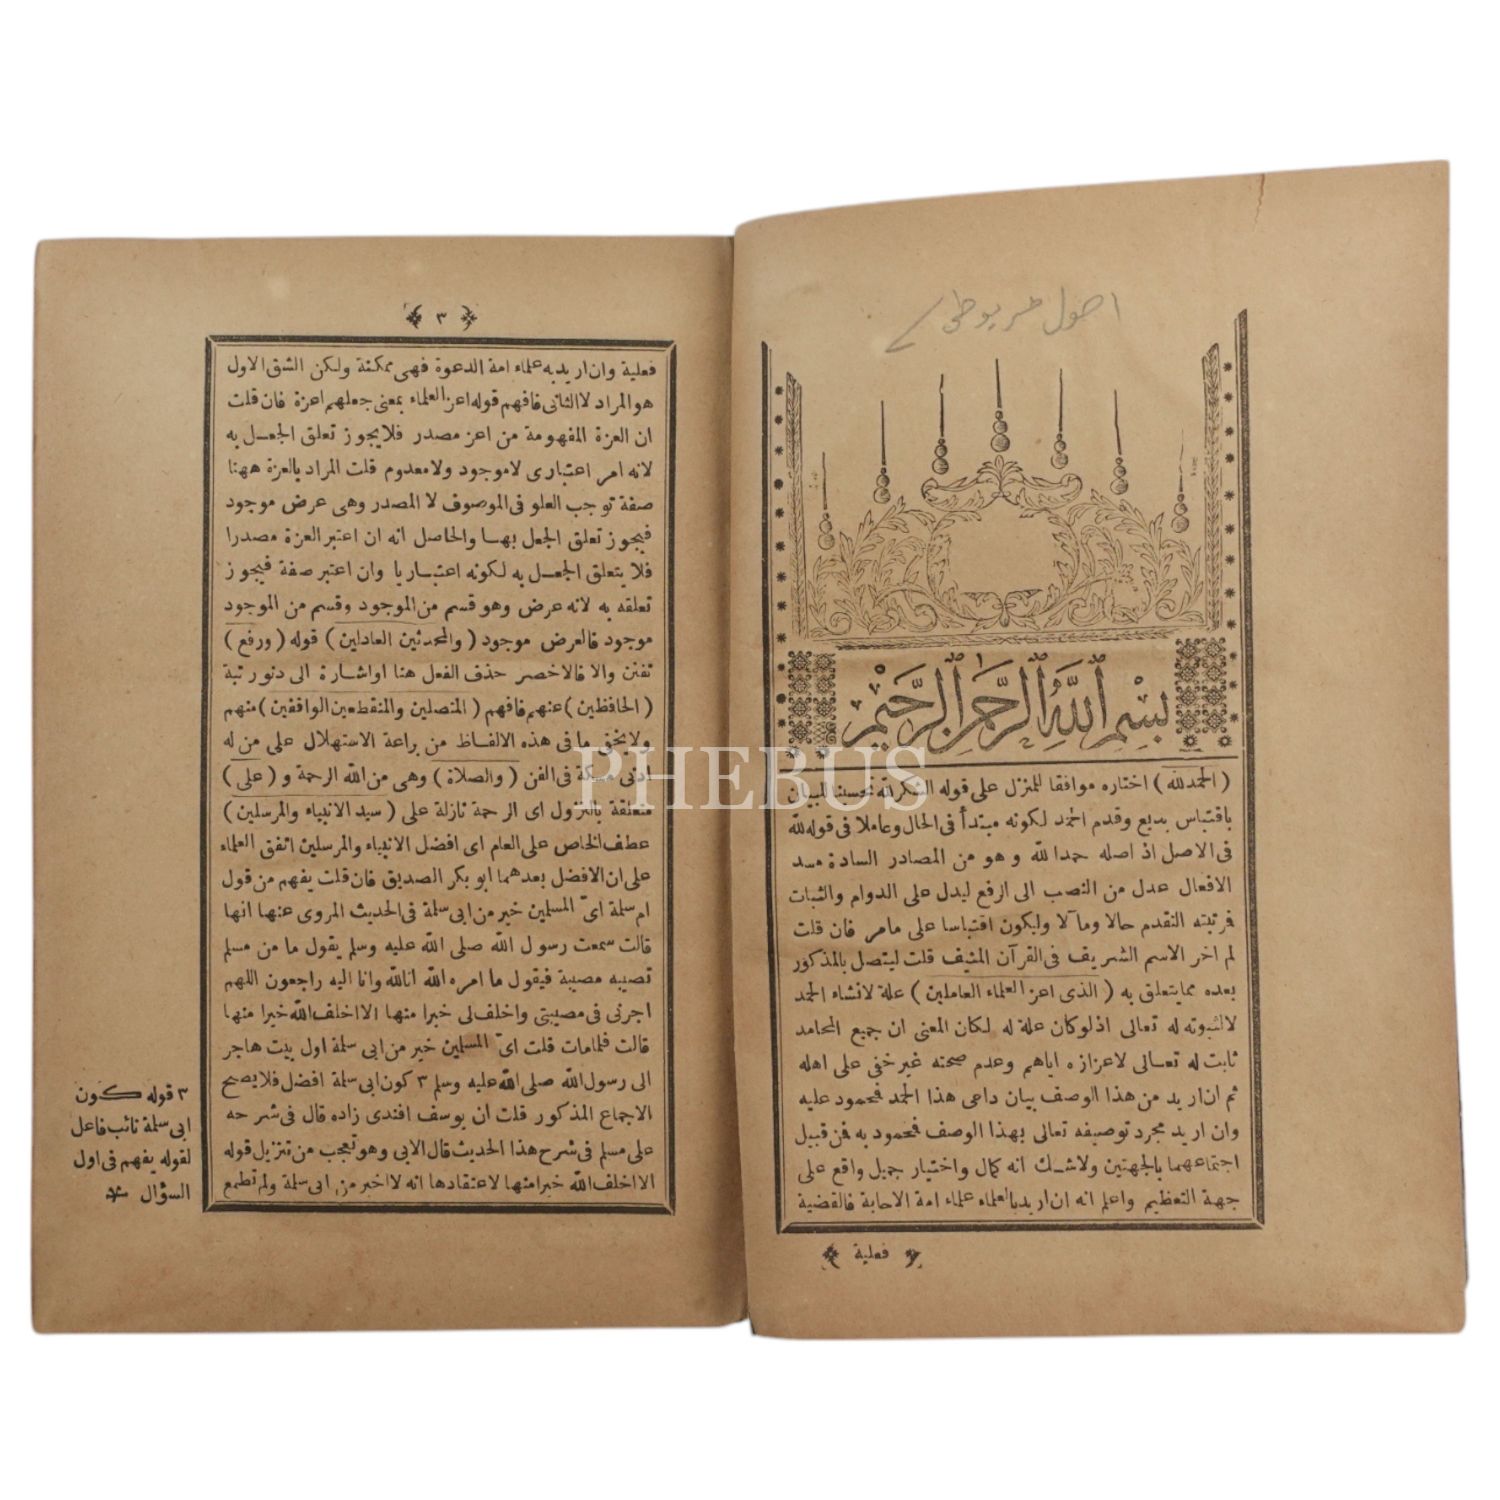 اصول خربوطى
بِسْمِ اللّٰهِ الرَّحْمٰنِ الرَّحِيْمِ
( الحمدلله ) اختاره موافقا للمنزل على قوله الشكرلله تحسينا للبيان
باقتباس بديع وقدم الحمد لكونه مبتدأ فى الحال وعاملا فى قوله لله
فى الاصل اذ اصله حمدا لله وهو من المصادر السادة مسد
الافعال عدل من النصب الى الرفع ليدل على الدوام والثبات
فرتبته التقدم حالا ومآلا وليكون اقتباسا على مامر فان قلت
لم اخر الاسم الشريف فى القرآن المنيف قلت ليتصل بالمذكور
بعده مما يتعلق به ( الذى اعز العلماء العاملين ) علة لانشاء الحمد
لالثبوته له تعالى اذ لوكان علة له لكان المعنى ان جميع المحامد
ثابت له تعالى لاعزازه اياهم وعدم صحته غير خفى على اهله
ثم ان اريد من هذا الوصف بيان داعى هذا الحمد فمحمود عليه
وان اريد مجرد توصيفه تعالى بهذا الوصف فمحمود به فمن قبيل
اجتماعهما بالجهتين ولاشك انه كمال واختيار جميل واقع على
جهة التعظيم واعلم انه ان اريد بالعلماء علماء امة الاجابة فالقضية
فعلية
٣
فعلية وان اريد به علماء امة الدعوة فهى ممكنة ولكن الشق الاول
هو المراد لا الثانى فافهم قوله اعز العلماء بمعنى جعلهم اعزة فان قلت
ان العزة المفهومة من اعز مصدر فلايجوز تعلق الجعل به
لانه امر اعتبارى لاموجود ولامعدوم قلت المراد بالعزة ههنا
صفة توجب العلو فى الموصوف لا المصدر وهى عرض موجود
فيجوز تعلق الجعل بها والحاصل انه ان اعتبر العزة مصدرا
فلا يتعلق الجعل به لكونه اعتباريا وان اعتبر صفة فيجوز
تعلقه به لانه عرض وهو قسم من الموجود وقسم من الموجود
موجود فالعرض موجود ( والمحدثين العادلين ) قوله ( ورفع )
تفنن والا فالاخصر حذف الفعل هنا او اشارة الى دنو رتبة
( الحافظين ) عنهم فافهم ( المتصلين والمنقطعين الواقفين ) منهم
ولايخفى ما فى هذه الالفاظ من براعة الاستهلال على من له
ادنى مسكة فى الفن ( والصلاة ) وهى من الله الرحمة و ( على )
متعلقة بالنزول اى الرحمة نازلة على ( سيد الانبياء والمرسلين )
عطف الخاص على العام اى افضل الانبياء والمرسلين اتفق العلماء
على ان الافضل بعدهما ابو بكر الصديق فان قلت يفهم من قول
ام سلمة اىّ المسلمين خير من ابى سلمة فى الحديث المروى عنها انها
قالت سمعت رسول الله صلى الله عليه وسلم يقول ما من مسلم
تصيبه مصيبة فيقول ما امره الله انالله وانا اليه راجعون اللهم
اجرنى فى مصيبتى واخلف لى خيرا منها الا اخلف الله خيرا منها
قالت فلمامات قلت اىّ المسلمين خير من ابى سلمة اول بيت هاجر
الى رسول الله صلى الله عليه وسلم ٣ كون ابى سلمة افضل فلايصح
الاجماع المذكور قلت ان يوسف افندى زاده قال فى شرحه
على مسلم فى شرح هذا الحديث قال الابى وهو تعجب من تنزيل قوله
الا اخلف الله خيرا منها لاعتقادها انه لا اخير من ابى سلمة ولم تطمع
٣ قوله كون
ابى سلمة نائب فاعل
لقوله يفهم فى اول
السؤال
PHEBUS